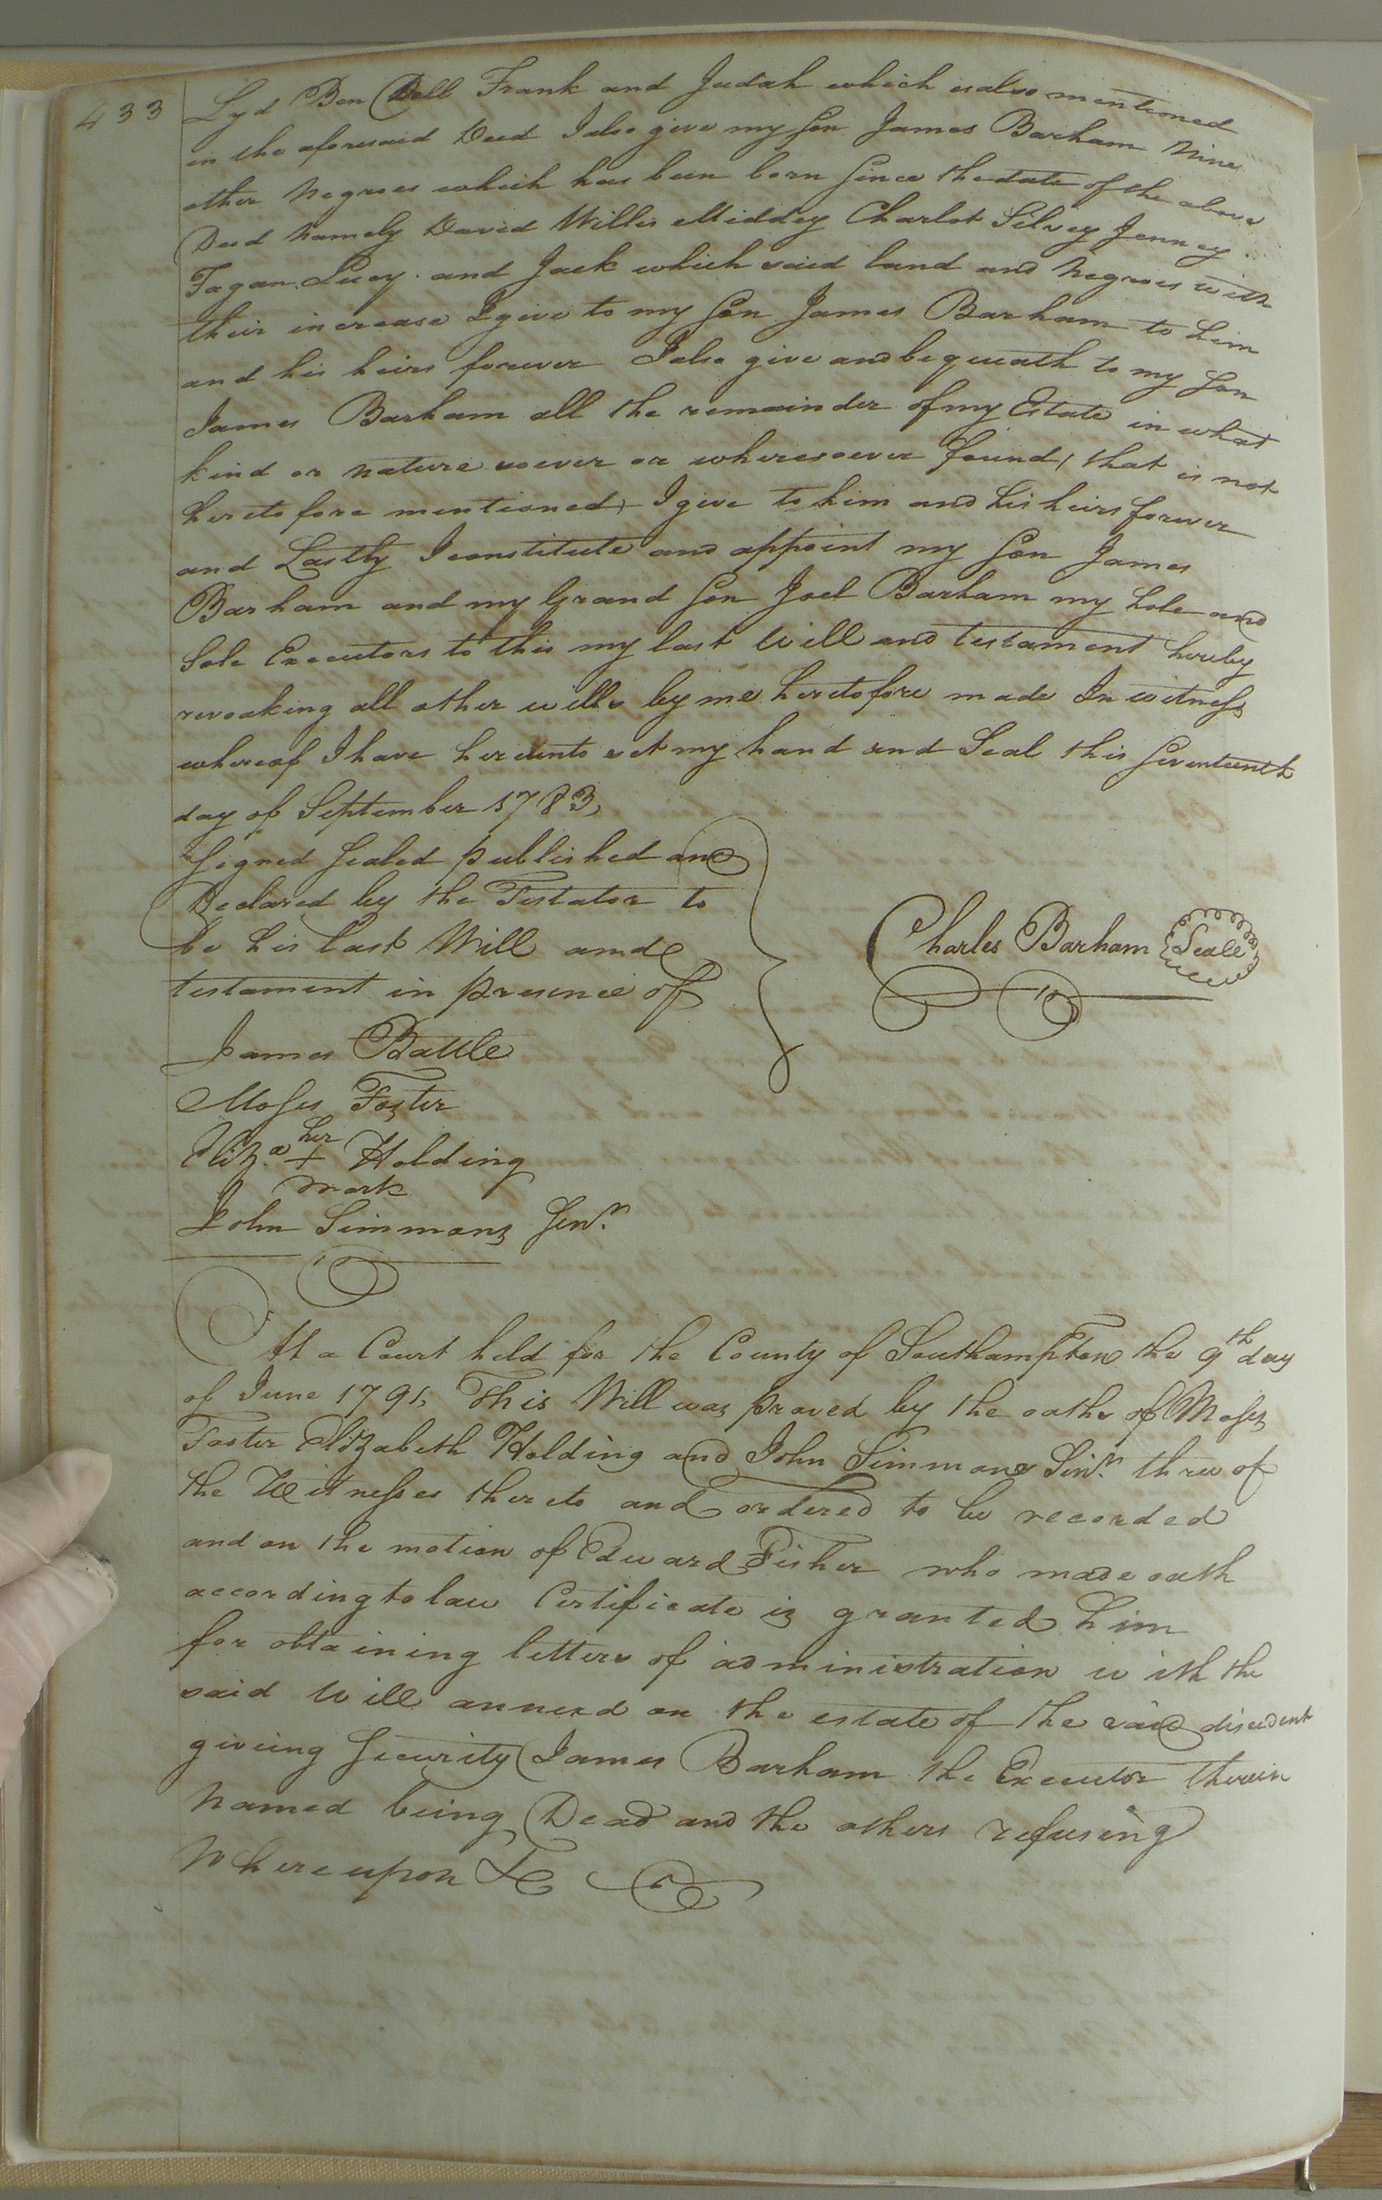 433
Lyd Ben Doll Frank and Judah which is also mentioned
in the aforesaid Deed I also give my Son James Barham Nine
other Negroes which has been born Since the date of the above
Deed Namely David Willis Middey Charlot Silvey Jenney
Fagan Lucy and Jack which said land and Negroes with
their increase I give to my Son James Barham to him
and his heirs forever I also give and bequeath to my Son
James Barham all the remainder of my Estate in what
kind or nature soever or wheresoever found, that is not
heretofore mentioned, I give to him and his heirs forever
and Lastly I constitute and appoint my Son James
Barham and my Grand Son Joel Barham my hole and
Sole Executors to this my last Will and testament hereby
revoaking all other wills by me heretofore made In witness
whereof I have hereunto set my hand and Seal this Seventeenth
day of September 1783,
Signed Sealed published and
Declared by the Testator to
be his last Will and
testament in presence of
Charles Barham Seale
James Battle
Moses Foster
her
Eliz.a + Holding
mark
John Simmons Sen.r
At a Court held for the County of Southampton the 9th day
of June 1791, This Will was proved by the oaths of Moses
Foster Elizabeth Holding and John Simmons Sen.r three of
the Witnesses thereto and ordered to be recorded
and on the motion of Edward Fisher who made oath
according to law Certificate is granted him
for obtaining letters of administration with the
said Will annexd on the estate of the said disedent
giveing Security James Barham the Executor therein
Named being Dead and the others refusing
Whereupon &c